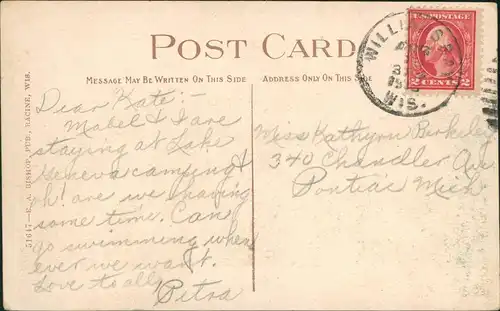 POST CARD
MESSAGE MAY BE WRITTEN ON THIS SIDE
ADDRESS ONLY ON THIS SIDE
U.S. POSTAGE
2 CENTS 2
WIS.
Dear Kate:-
Mabel & I are
staying at Lake
Geneva camping &
oh! are we having
some time. Can
go swimming when
ever we want.
Love to all,
Petra
Miss Kathyrn Berkeley
340 Chandler Ave
Pontiac Mich
51647-E. A. BISHOP, PUB., RACINE, WIS.